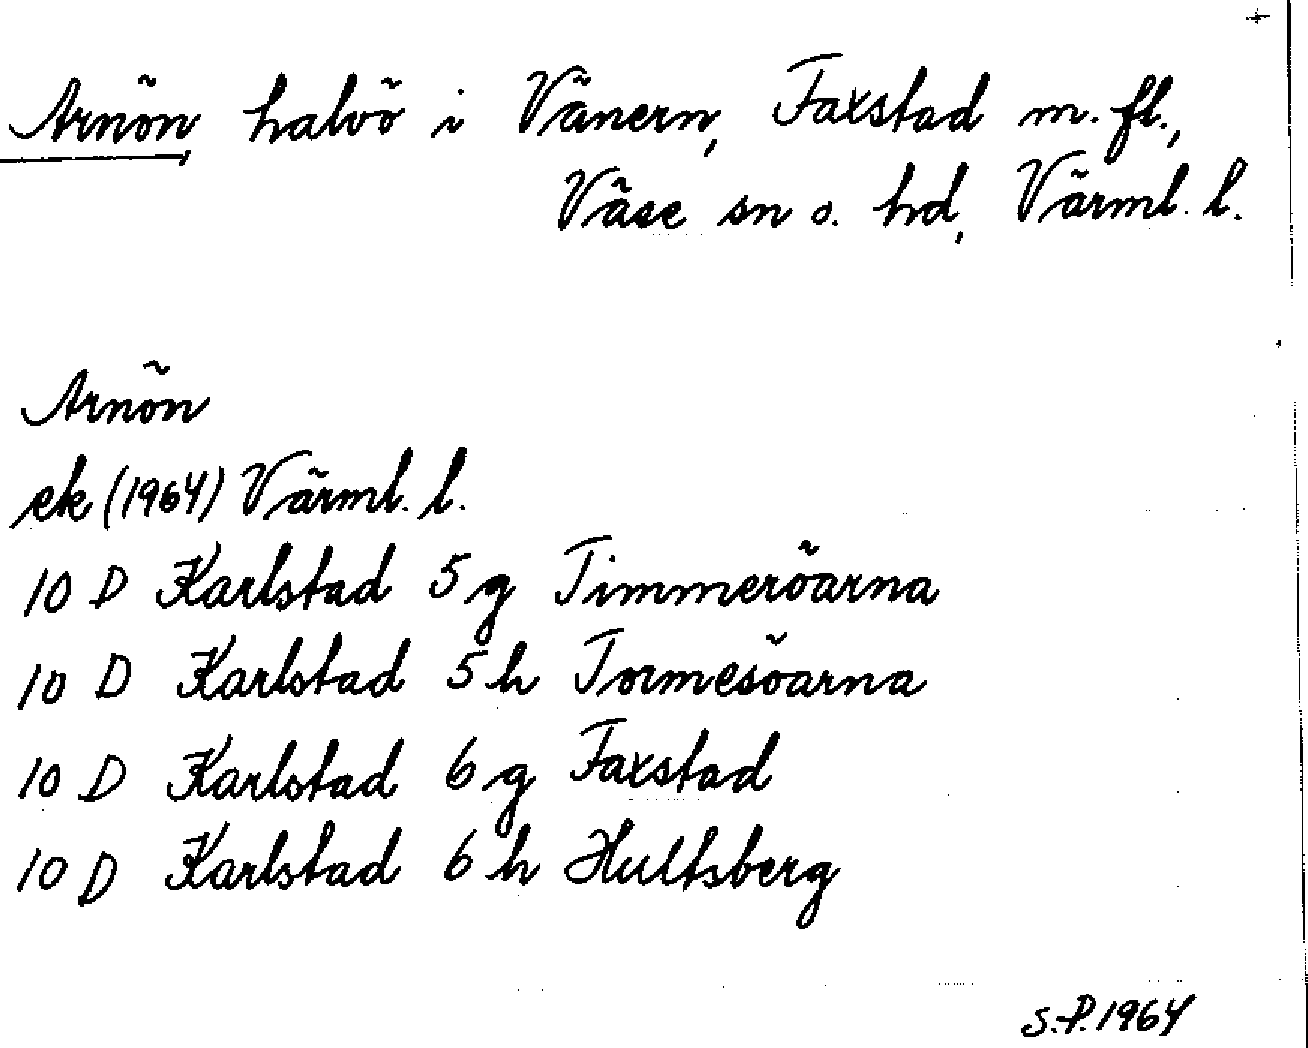 Arnön, halvö i Vänern, Faxstad m. fl.,
Väse sn o. hd, Värml. l.
Arnön
ek (1964) Värml. l.
10 D Karlstad 5 g Timmeröarna
10 D Karlstad 5 h Tormesöarna
10 D Karlstad 6 g Faxstad
10 D Karlstad 6 h Hultsberg
S.P. 1964